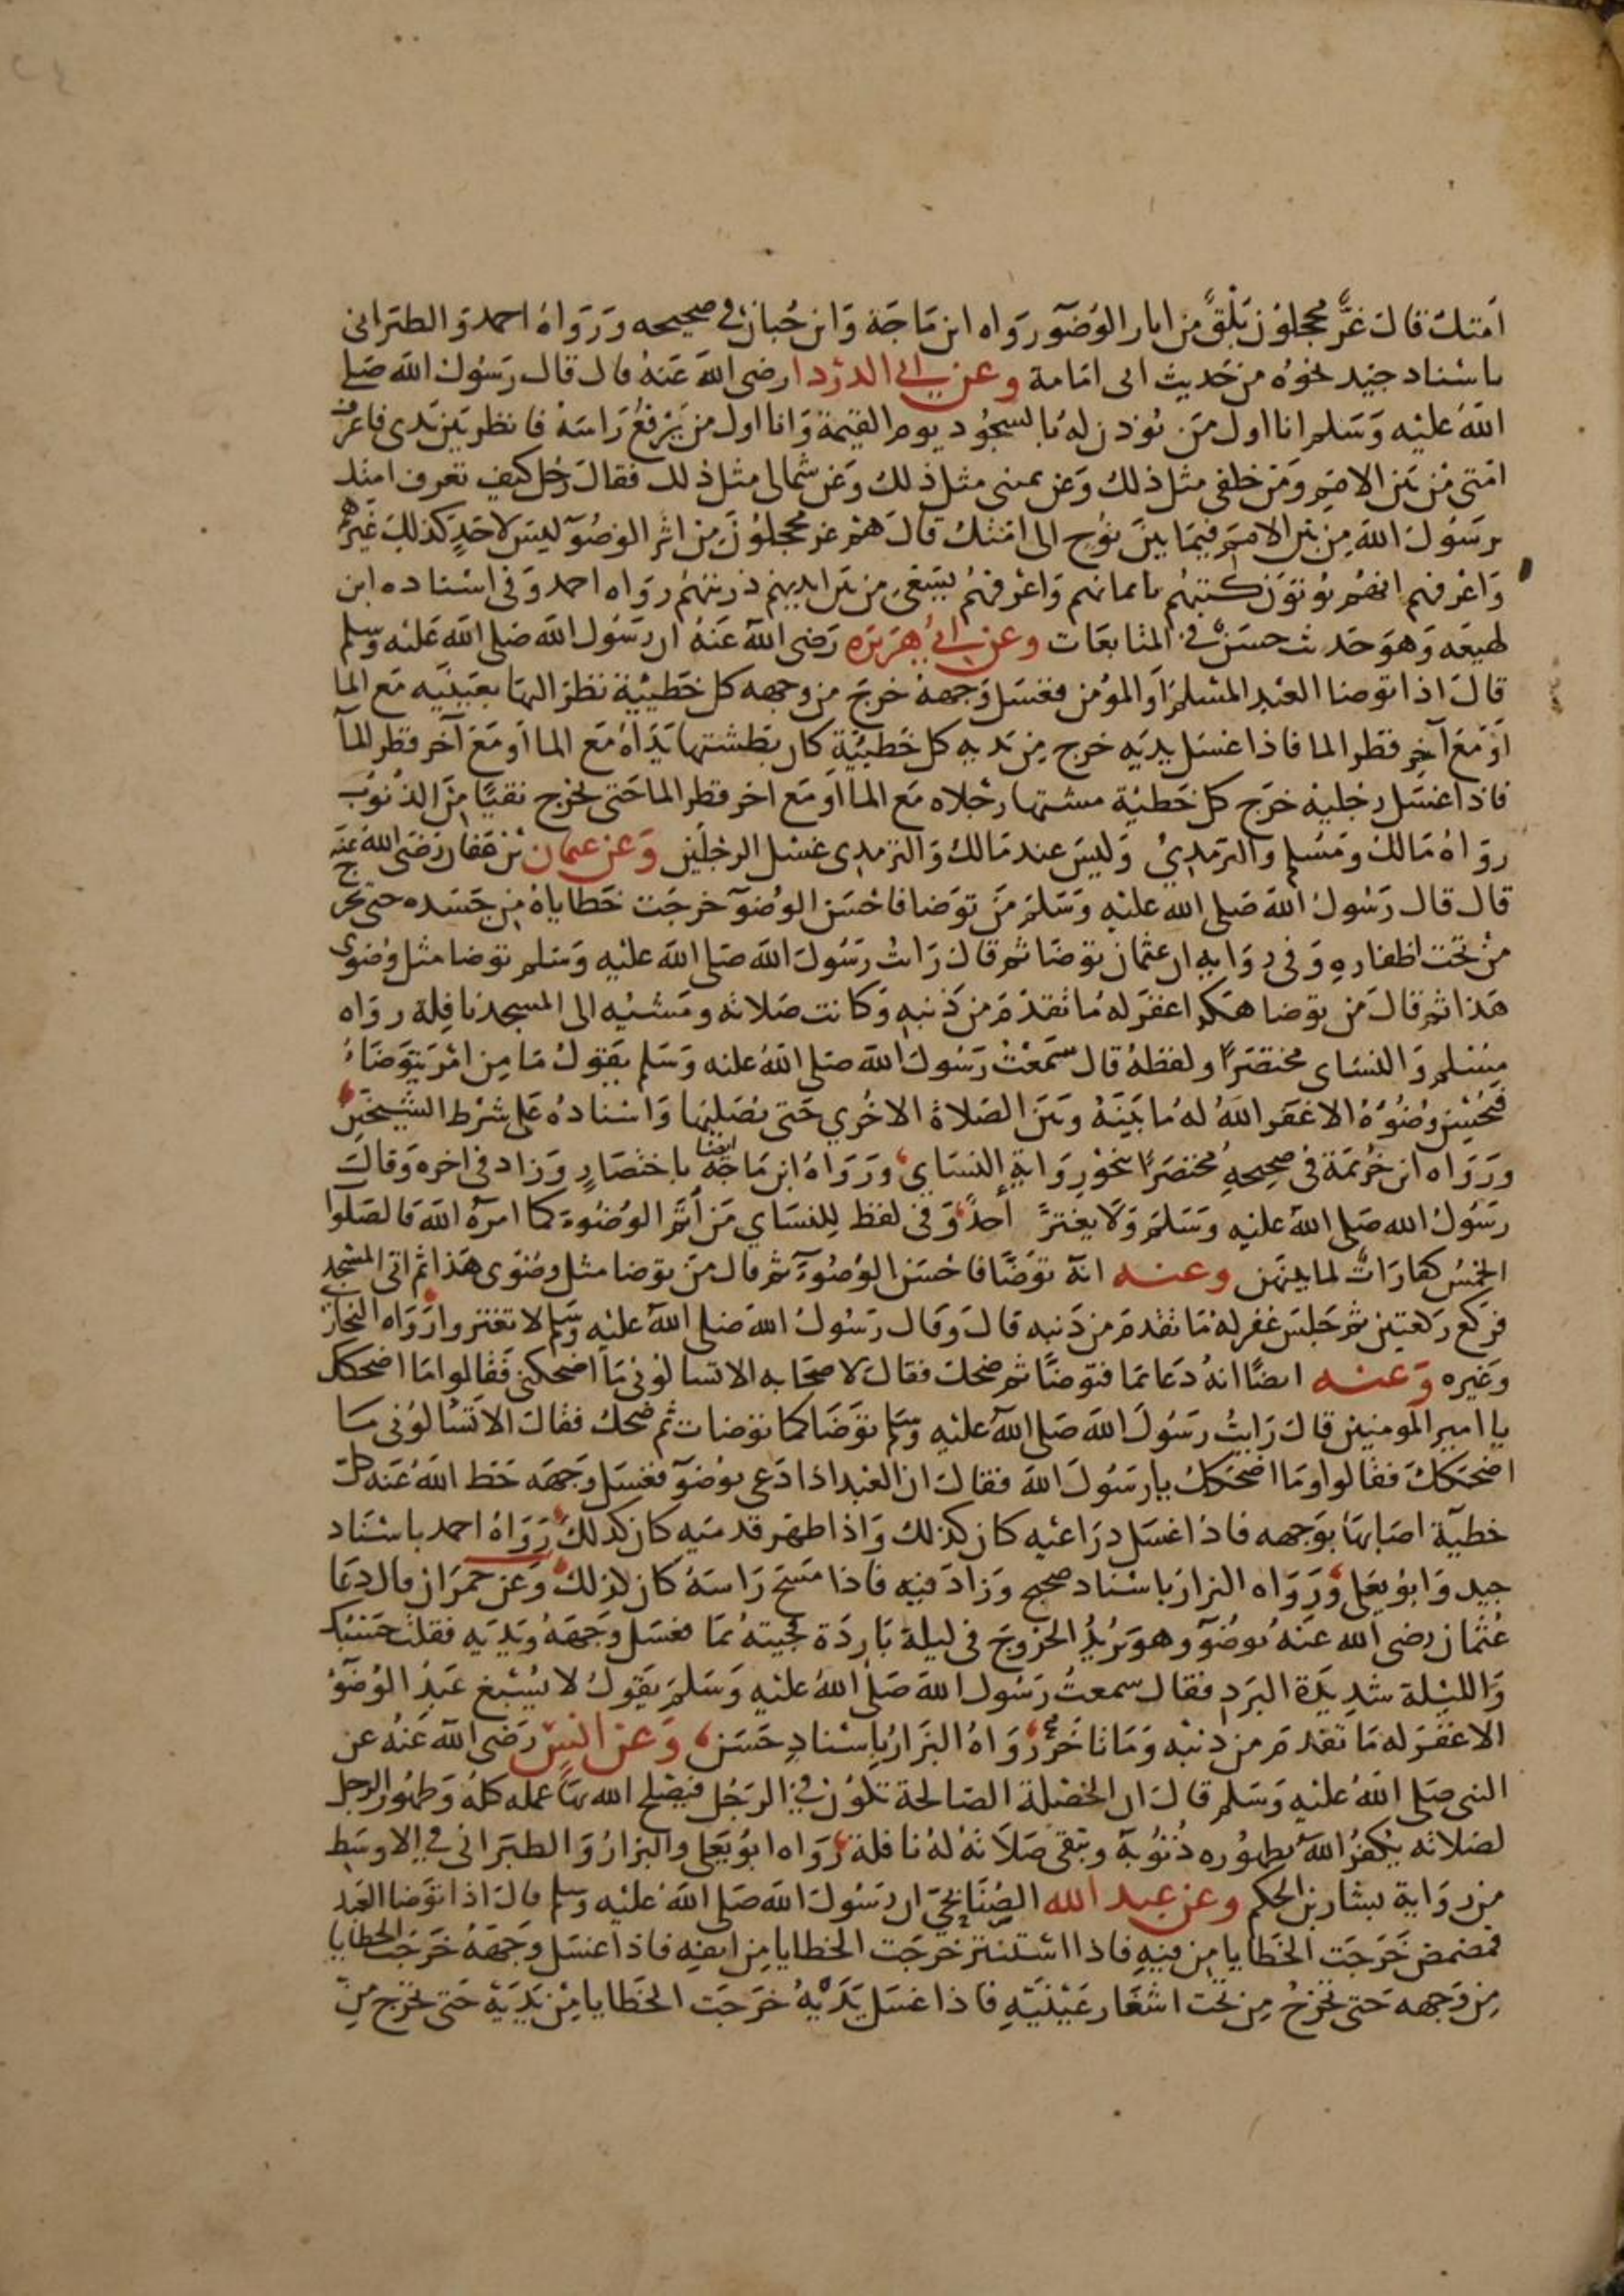 امتك قال غرٌّ محجلون بُلْقٌ من اثار الوضوء رواه ابن ماجة وابن حبان في صحيحه ورواه احمد والطبراني
باسناد جيد نحوه من حديث ابي امامة وعن ابي الدردا رضي الله عنه قال قال رسول الله صلى
الله عليه وسلم انا اول من يؤذن له بالسجود يوم القيمة وانا اول من يرفع راسه فانظر بين يدي فاعرف
امتي من بين الامم ومن خلفي مثل ذلك وعن يميني مثل ذلك وعن شمالي مثل ذلك فقال رجل كيف تعرف امتك
يرسول الله من بين الامم فيما بين نوح الى امتك قال هم غر محجلون من اثر الوضوء ليس لاحد كذلك غيرهم
واعرفهم انهم يؤتون كتبهم بايمانهم واعرفهم يسعى من بين ايديهم ذريتهم رواه احمد وفي اسناده ابن
لهيعه وهو حديث حسن في المتابعات وعن ابي هريره رضي الله عنه ان رسول الله صلى الله عليه وسلم
قال اذا توضا العبد المسلم او المؤمن فغسل وجهه خرج من وجهه كل خطيئة نظر اليها بعينيه مع الما
او مع آخر قطر الما فاذا غسل يديه خرج من يديه كل خطيئة كان بطشتها يداه مع الما او مع آخر قطر الما
فاذا غسل رجليه خرج كل خطيئة مشتها رجلاه مع الما او مع اخر قطر الما حتى يخرج نقيا من الذنوب
رواه مالك ومسلم والترمذي وليس عند مالك والترمذي غسل الرجلين وعن عثمان بن عفان رضي الله عنه
قال قال رسول الله صلى الله عليه وسلم من توضا فاحسن الوضوء خرجت خطاياه من جسده حتى تخرج
من تحت اظفاره وفي رواية ان عثمان توضا ثم قال رايت رسول الله صلى الله عليه وسلم توضا مثل وضوى
هذا ثم قال من توضا هكذا غفر له ما تقدم من ذنبه وكانت صلاته ومشيه الى المسجد نافلة رواه
مسلم والنساي مختصرا ولفظه قال سمعت رسول الله صلى الله عليه وسلم يقول ما من امر يتوضاء
فيحسن وضوءه الا غفر الله له ما بينه وبين الصلاة الاخرى حتى يصليها واسناده على شرط الشيخين
ورواه ابن خزيمة في صحيحه مختصرا بنحو رواية النساي ورواه ابن ماجة ايضا باختصار وزاد في اخره وقال
رسول الله صلى الله عليه وسلم ولا يغتر احد وفي لفظ للنساي من أتم الوضوء كما امره الله فالصلوا
الخمس كفارات لما بينهن وعنه انه توضا فاحسن الوضوء ثم قال من توضا مثل وضوى هذا ثم اتى المسجد
فركع ركعتين ثم جلس غفر له ما تقدم من ذنبه قال وقال رسول الله صلى الله عليه وسلم لا تغتروا رواه البخاري
وغيره وعنه ايضا انه دعا بما فتوضا ثم ضحك فقال لاصحابه الا تسالوني ما اضحكني فقالوا ما اضحكك
يا امير المومنين قال رايت رسول الله صلى الله عليه وسلم توضا كما توضات ثم ضحك فقال الا تسالوني ما
اضحكك فقالوا وما اضحكك يارسول الله فقال ان العبد اذا دعى بوضوء فغسل وجهه حط الله عنه كل
خطية اصابها بوجهه فاذا غسل ذراعيه كان كذلك واذا طهر قدميه كان كذلك رواه احمد باسناد
جيد وابو يعلى ورواه البزار باسناد صحيح وزاد فيه فاذا مسح راسه كان كذلك وعن حمران قال دعا
عثمان رضي الله عنه بوضوء وهو يريد الخروج في ليلة باردة فجيته بما فغسل وجهه ويديه فقلت حسبك
والليلة شديدة البرد فقال سمعت رسول الله صلى الله عليه وسلم يقول لا يسبغ عبد الوضوء
الا غفر له ما تقدم من ذنبه وما تاخر رواه البزار باسناد حسن وعن انس رضي الله عنه عن
النبي صلى الله عليه وسلم قال ان الخصلة الصالحة تكون في الرجل فيصلح الله بها عمله كله وطهور الرجل
لصلاته يكفر الله بطهوره ذنوبه وتبقى صلاته له نافلة رواه ابو يعلى والبزار والطبراني في الاوسط
من رواية بشار بن الحكم وعن عبد الله الصنابحي ان رسول الله صلى الله عليه وسلم قال اذا توضا العبد
فمضمض خرجت الخطايا من فيه فاذا استنثر خرجت الخطايا من انفه فاذا غسل وجهه خرجت الخطايا
من وجهه حتى تخرج من تحت اشفار عينيه فاذا غسل يديه خرجت الخطايا من يديه حتى تخرج من